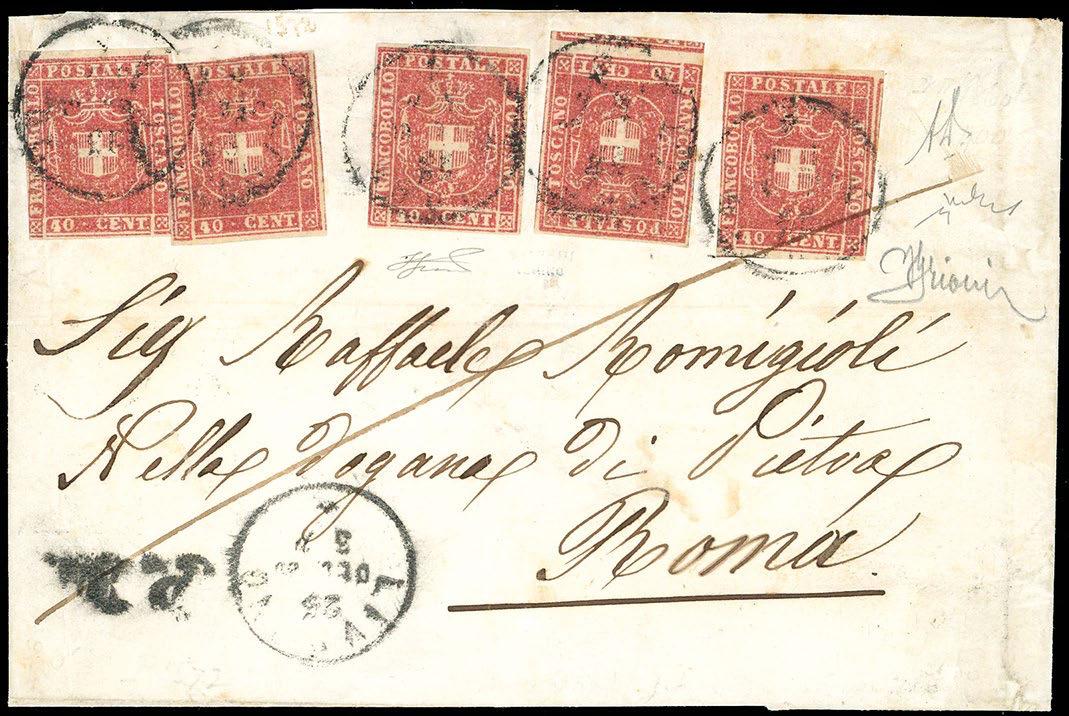 1572
FRANCOBOLLO POSTALE TOSCANO
40 CENT
FRANCOBOLLO POSTALE TOSCANO
40 CENT
FRANCOBOLLO POSTALE TOSCANO
40 CENT
FRANCOBOLLO POSTALE TOSCANO
40 CENT
FRANCOBOLLO POSTALE TOSCANO
40 CENT
Sig Raffaele Romigioli
Nella dogana di Pietra
Roma.
P.D.
LIV
25
DEC